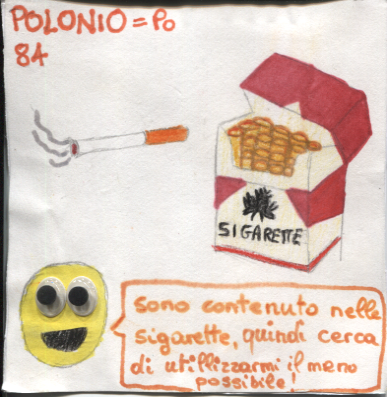 POLONIO = Po
84
SIGARETTE
sono contenuto nelle
sigarette, quindi cerca
di utillizzarmi il meno
possibile!